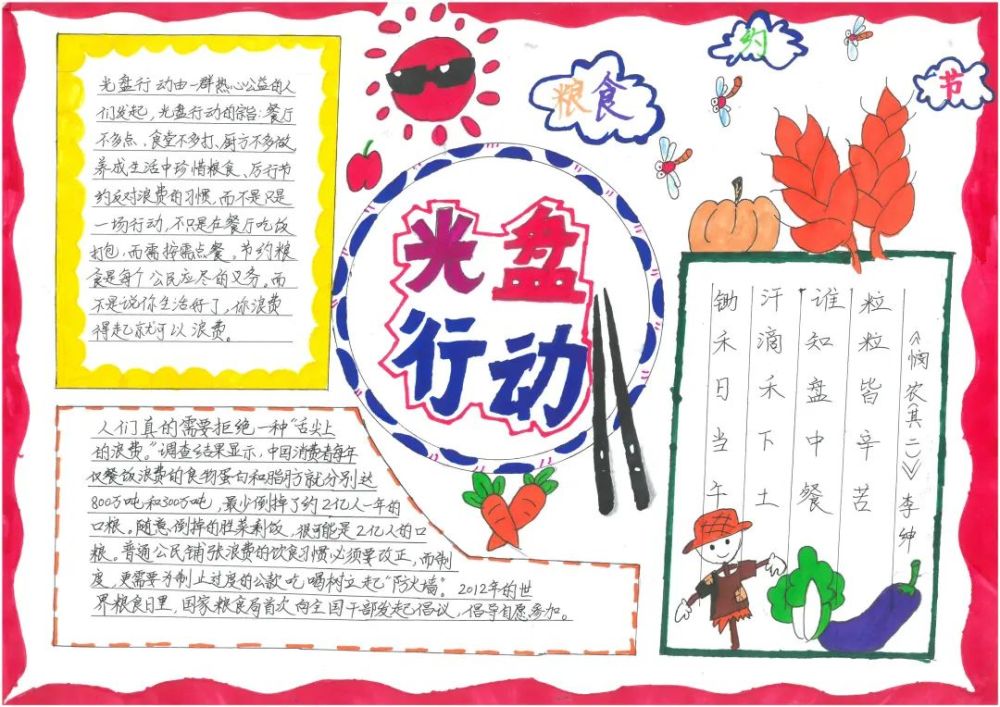 节
约
粮食
光盘
行动
光盘行动由一群热心公益的人
们发起，光盘行动的宗旨：餐厅
不多点，食堂不多打、厨方不多做
养成生活中珍惜粮食、厉行节
约反对浪费的习惯，而不是只是
一场行动，不只是在餐厅吃饭
打包，而需按需点餐。节约粮
食是每个公民应尽的义务。而
不是说你生活好了，你浪费
得起就可以浪费。
人们真的需要拒绝一种“舌尖上
的浪费。”调查结果显示，中国消费者每年
仅餐饭浪费的食物蛋白和脂肪就分别达
800万吨和300万吨，最少倒掉了约2亿人一年的
口粮。随意倒掉的胜菜剩饭，很可能是2亿人的口
粮。普通公民铺张浪费的饮食习惯必须要改正，而制
度，更需要为制止过度的公款吃喝树立起“防火墙”。2012年的世
界粮食日里，国家粮食局首次向全国干部发起倡议，倡导自愿参加。
《悯农(其二)》李绅
锄禾日当午
汗滴禾下土
谁知盘中餐
粒粒皆辛苦